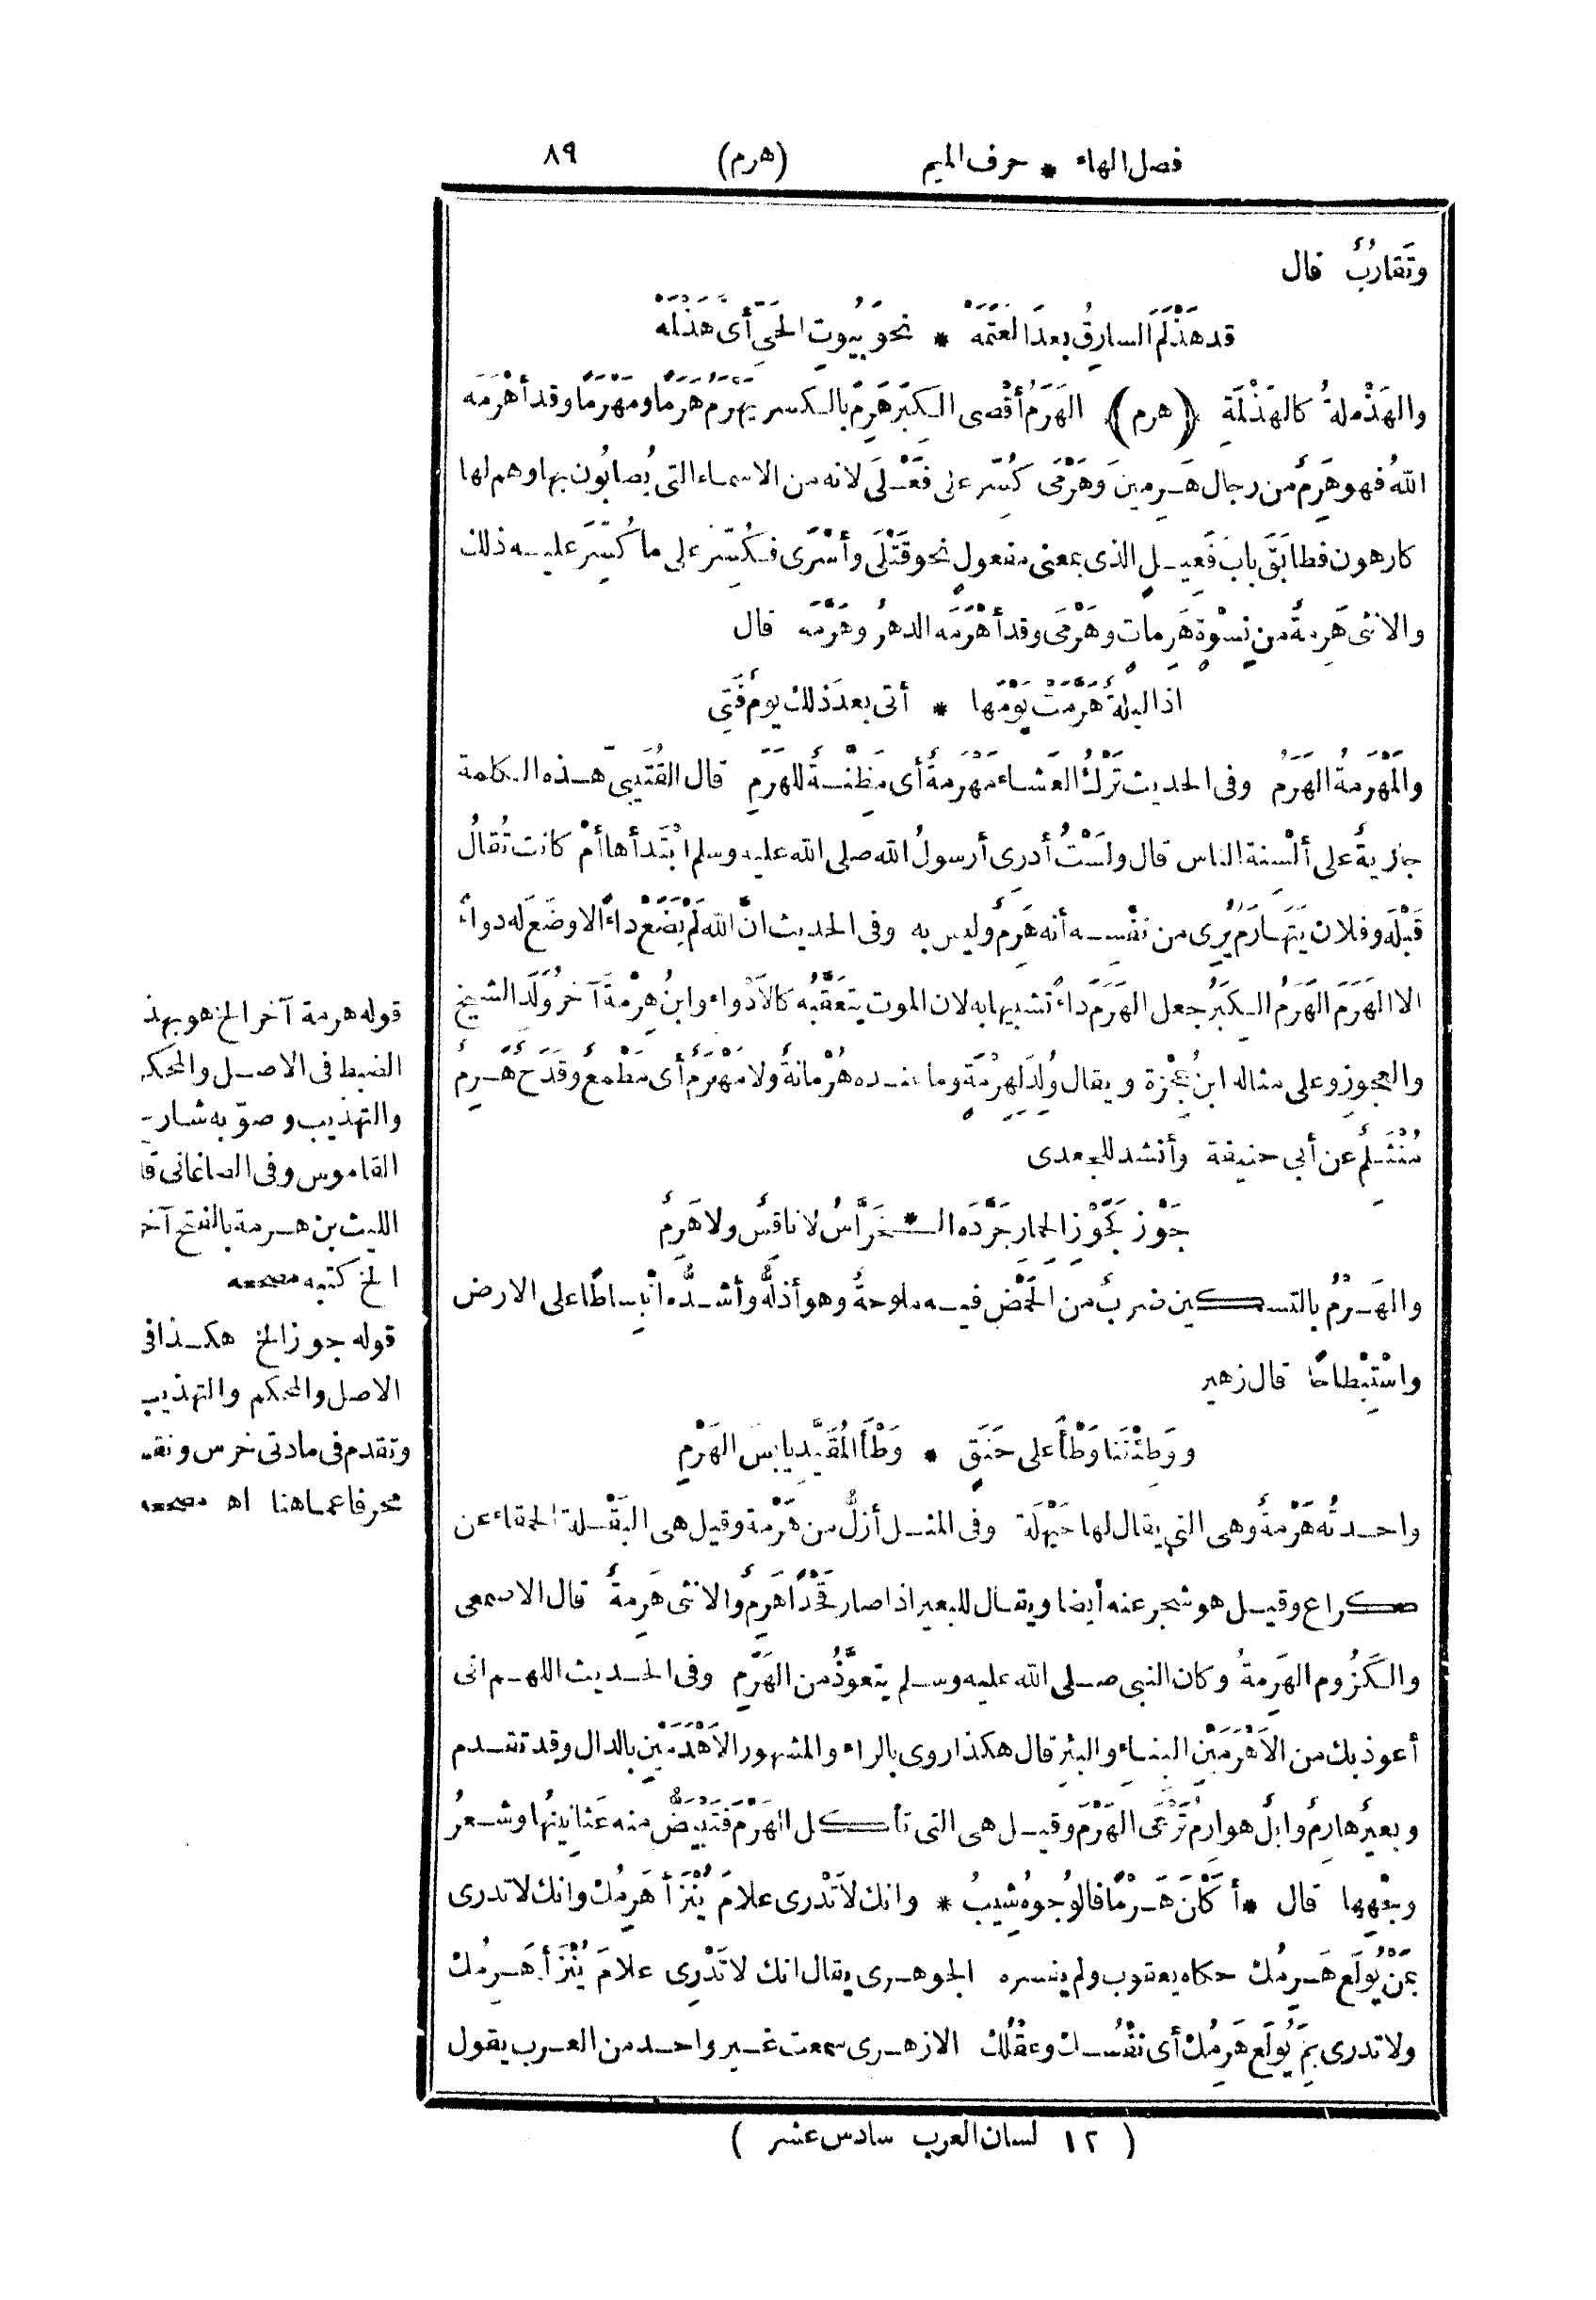 فصل الهاء * حرف الميم (هرم) ٨٩
وتَقارُبٌ قال
قد هَذْلَمَ السارِقُ بعدَ العَتَمَهْ * نحوَ بُيوتِ الحَيِّ أَىَّ هَذْلَمَهْ
والهَذْملةُ كالهَذْلَمةِ (هرم) الهَرَمُ أَقْصى الكِبَرِ هَرِمَ بالكسر يَهْرَمُ هَرَمًا ومَهْرَمًا وقد أَهْرَمَه
اللهُ فهو هَرِمٌ من رجال هَرِمينَ وهَرْمَى كُسِّر على فَعْلَى لانه من الاسماء التى يُصابُون بها وهم لها
كارهون فطابَقَ بابَ فَعِيلٍ الذى بمعنى مفعولٍ نحو قَتْلَى وأَسْرَى فكُسِّرَ على ما كُسِّرَ عليه ذلك
والانثى هَرِمةٌ من نِسْوةٍ هَرِماتٍ وهَرْمَى وقد أَهْرَمَه الدهرُ وهَرَّمَه قال
اذا ليلةٌ هَرَّمَتْ يَوْمَها * أتى بعدَ ذلك يومٌ فَتِى
والمَهْرَمةُ الهَرَمُ وفى الحديث تَرْكُ العَشاء مَهْرَمةٌ أى مَظِنّةٌ للهَرَمِ قال القُتَيبىّ هذه الكلمة
جاريةٌ على أَلْسِنة الناس قال ولَسْتُ أدرى أرسولُ الله صلى الله عليه وسلم ابْتَدأها أمْ كانت تُقالُ
قَبْلَه وفلان يَتَهارَمُ يُرِى من نفْسِه أنه هَرِمٌ وليس به وفى الحديث انّ الله لَمْ يَضَعْ داءً الا وضَعَ له دواءً
الا الهَرَمَ الهَرَمُ الكِبَرُ جعل الهَرَمَ داءً تشبيها به لان الموت يتعَقَّبُه كالأَدْواء وابنُ هِرْمةَ آخرُ وَلَدِ الشيخ
والعجوزِ وعلى مثاله ابنُ عِجْزة ويقال وُلِدَ لِهِرْمَةٍ وما عنده هُرْمانةٌ ولا مَهْرَمٌ أى مَطْمعٌ وقَدَحٌ هَرِمٌ
مُنْثَلِمٌ عن أبى حنيفة وأنشد للجعدى
جَوْز كَجَوْزِ الحِمارِ جَرَّدَه الـ * خَرَّاسُ لا ناقِسٌ ولا هَرِمُ
والهَرْمُ بالتسكين ضربٌ من الحَمْضِ فيه ملوحةٌ وهو أذلُّه وأشدُّه انْبِساطًا على الارض
واسْتِبْطاحًا قال زهير
ووَطِئْتَنا وَطْأً على حَنَقٍ * وَطْأَ المُقَيَّدِ يابِسَ الهَرْمِ
واحدتُه هَرْمةٌ وهى التى يقال لها حَيْهَلَة وفى المثل أذلُّ من هَرْمة وقيل هى البَقْلة الحمقاء عن
كراع وقيل هو شجر عنه أيضا ويقال للبعير اذا صار قَحْدًا هَرِمٌ والانثى هَرِمةٌ قال الاصمعى
والكَزُوم الهَرِمةُ وكان النبى صلى الله عليه وسلم يتعوَّذُ من الهَرَمِ وفى الحديث اللهم انى
أعوذ بك من الأَهْرَمَيْنِ البناءِ والبئرِ قال هكذا روى بالراء والمشهور الأَهْدَمَيْنِ بالدال وقد تقدم
وبعيرٌ هارِمٌ وابلٌ هوارِمُ تَرْعَى الهَرْمَ وقيل هى التى تأكل الهَرْمَ فتَبْيَضُّ منه عَثانِينُها وشعرُ
وجْهِها قال * أكَلْنَ هَرْمًا فالوُجوهُ شِيبُ * وانك لا تَدْرى علامَ يُنْزَأ هَرِمُك وانك لا تدرى
بمَنْ يُولَع هَرِمُك حكاه يعقوب ولم يفسره الجوهرى يقال انك لا تَدْرِى علامَ يُنْزَأ هَرِمُك
ولا تدرى بِمَ يُولَع هَرِمُك أى نَفْسُك وعقْلُك الازهرى سمعت غير واحد من العرب يقول
(١٢ لسان العرب سادس عشر)
قوله هرمة آخر الخ هو بهذ
الضبط فى الاصل والمحكم
والتهذيب وصوّبه شارح
القاموس وفى الصاغانى قا
الليث بن هرمة بالفتح آخر
الخ كتبه مصححه
قوله جوز الخ هكذا فى
الاصل والمحكم والتهذيب
وتقدم فى مادتى خرس ونقس
محرفا عما هنا اه مصححه